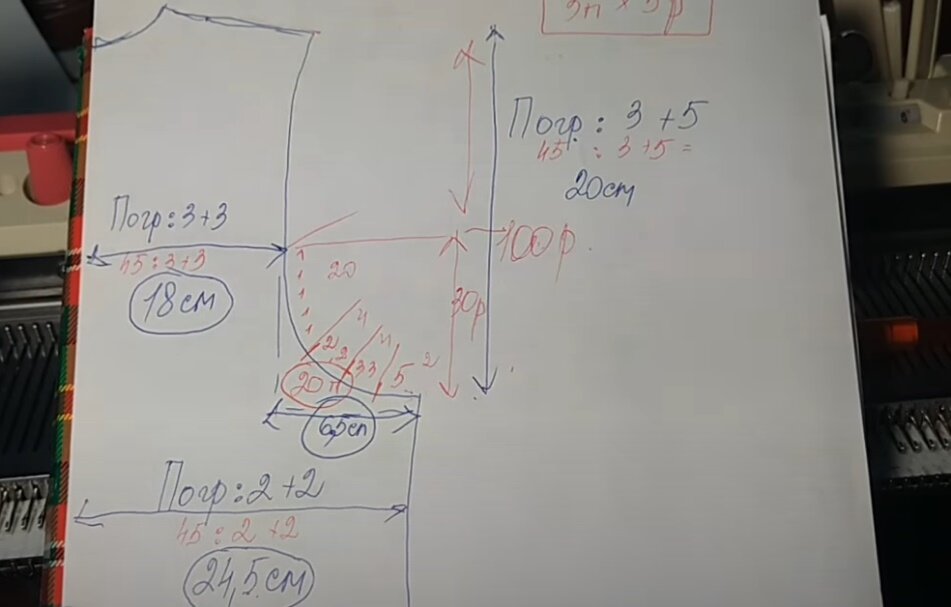 3п × 3р
Погр: 3 + 5
45 : 3 + 5 =
20см
Погр: 3+3
45 : 3+3
18см
100р.
20
1
1
1
1
1
30р
4
4
2
2, 2
3 3
5
20п
6,5см
Погр: 2 + 2
45 : 2 + 2
24,5 см